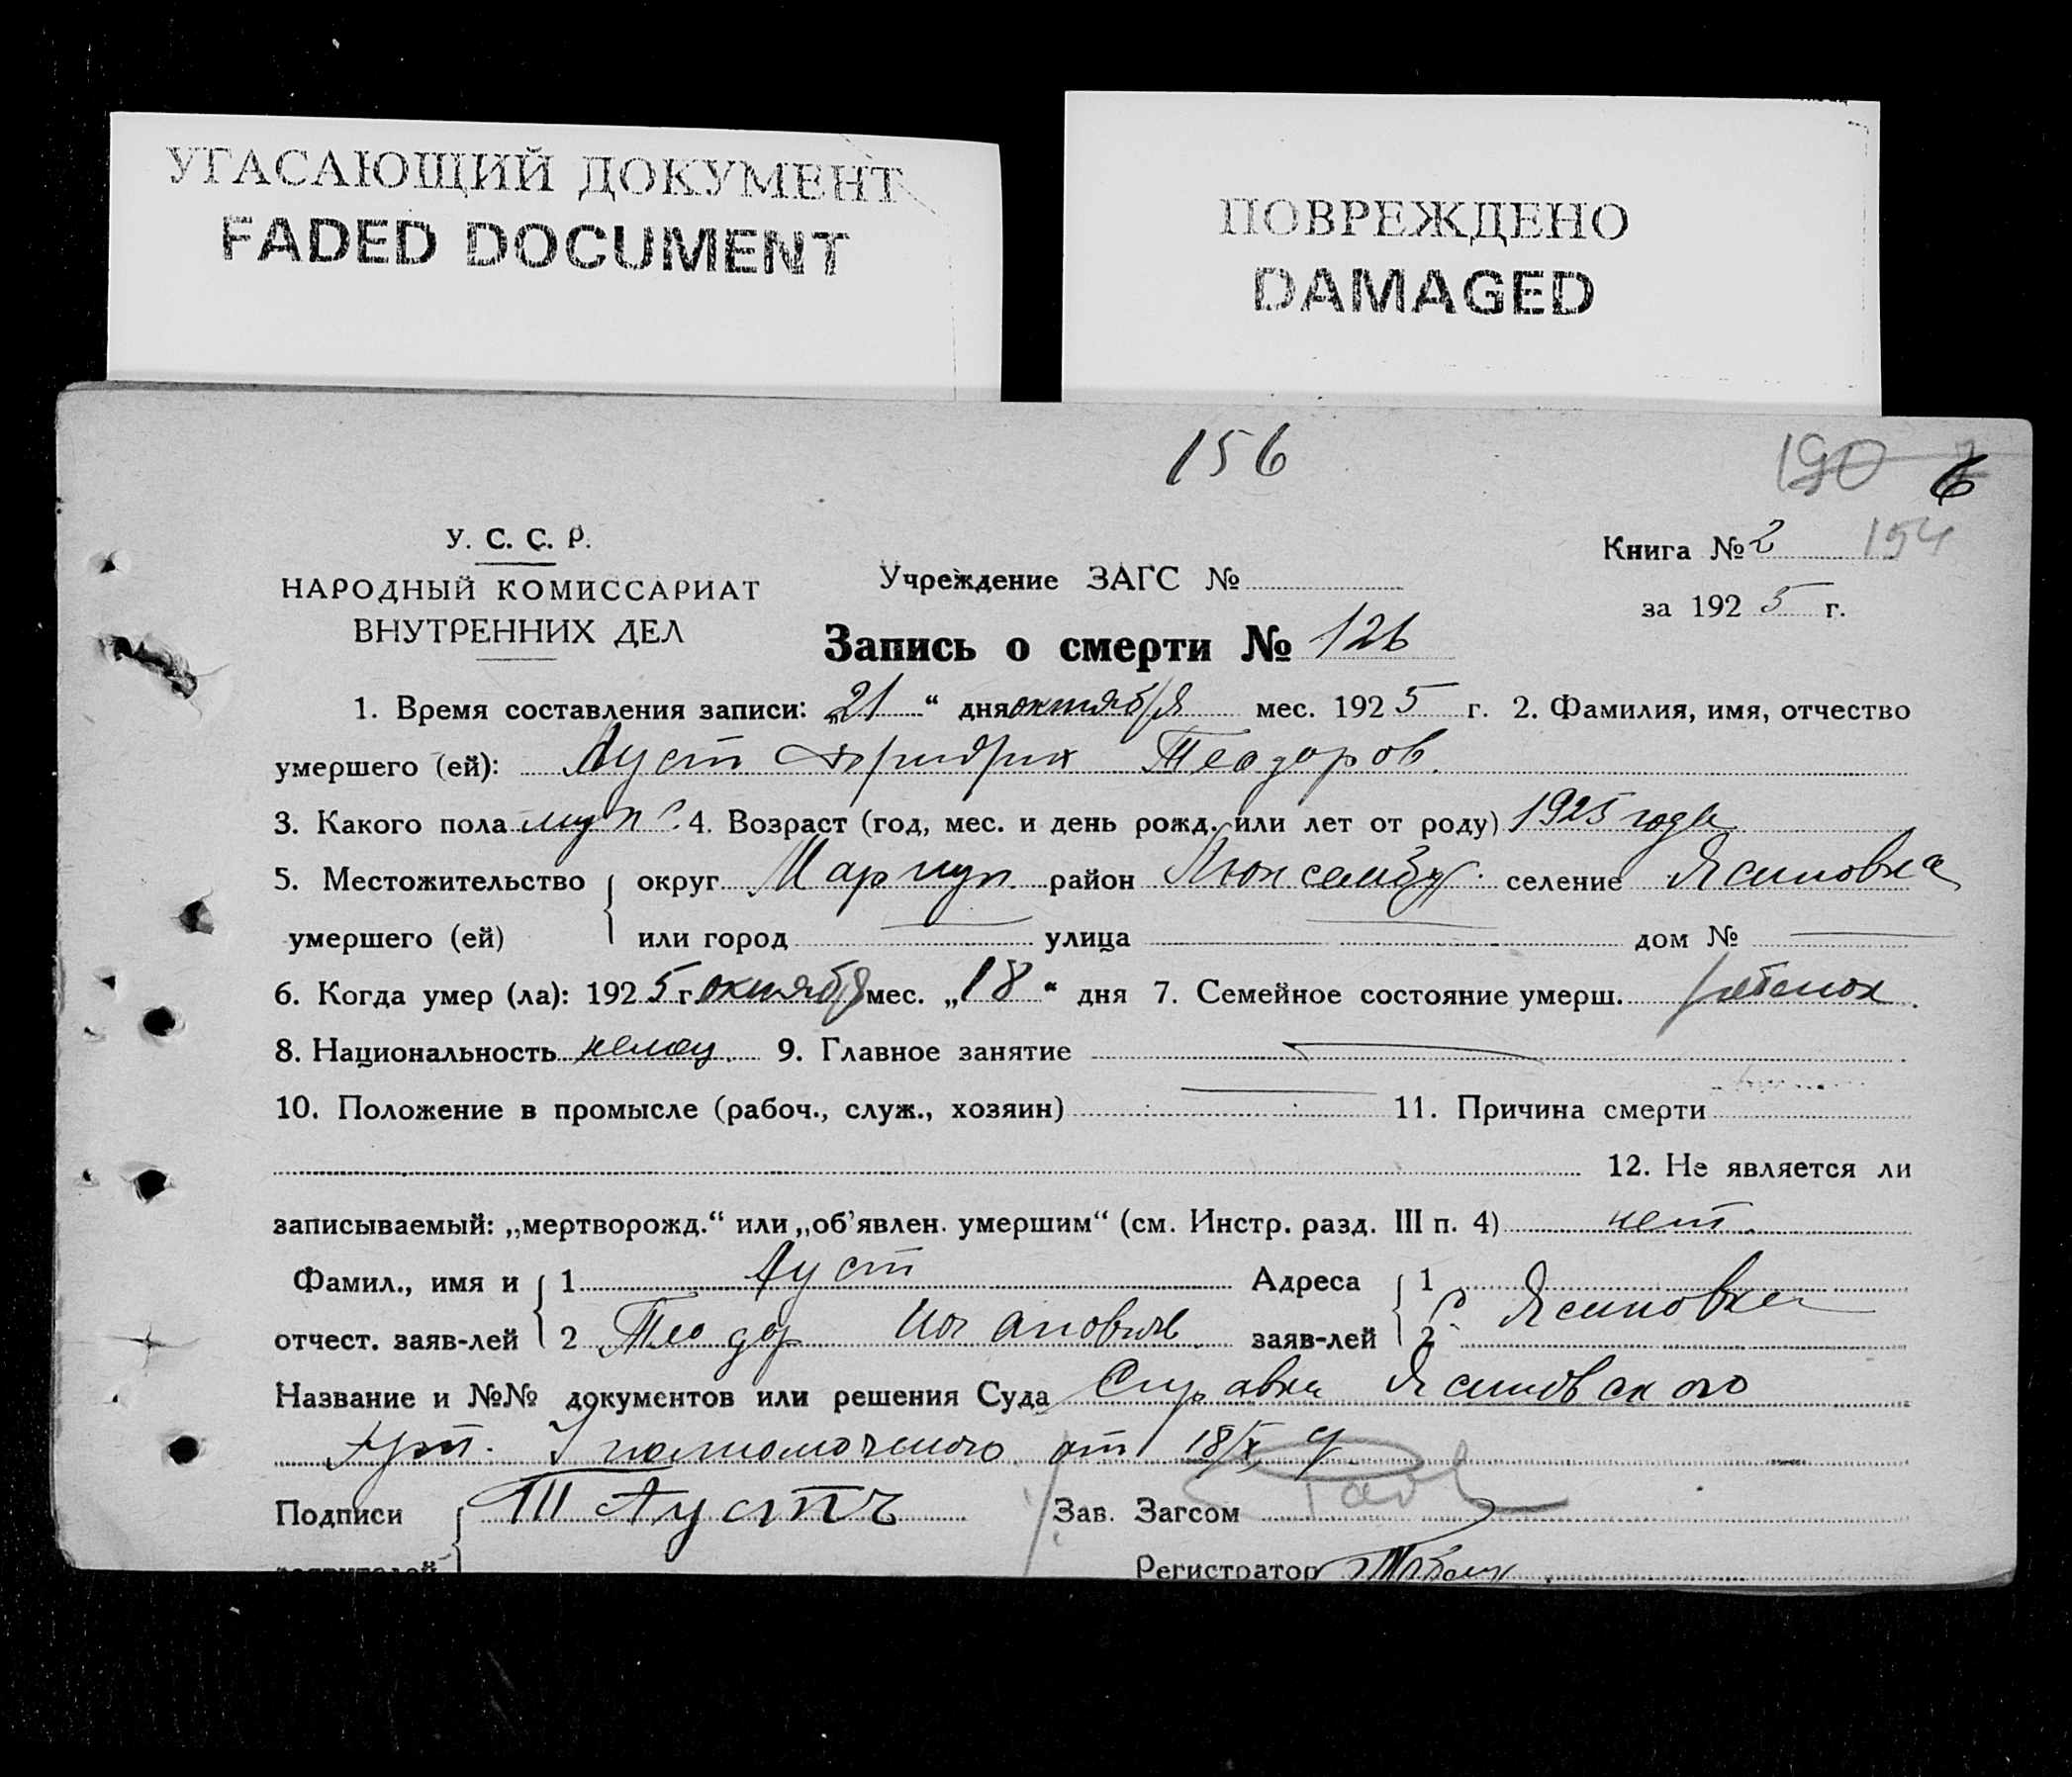 УГАСАЮЩИЙ ДОКУМЕНТ
FADED DOCUMENT
ПОВРЕЖДЕНО
DAMAGED
156
190 6
У. С. С. Р.
НАРОДНЫЙ КОМИССАРИАТ
ВНУТРЕННИХ ДЕЛ
Учреждение ЗАГС №
Книга № 2 194
за 1925 г.
Запись о смерти № 126
1. Время составления записи: „21“ дня октября мес. 1925 г. 2. Фамилия, имя, отчество
умершего (ей): Ауст Фридрих Теодоров.
3. Какого пола муж. 4. Возраст (год, мес. и день рожд. или лет от роду) 1925 года
5. Местожительство округ Мариуп. район Люксембу. селение Ясиновка
умершего (ей) или город улица дом №
6. Когда умер (ла): 1925 г. октября мес. „18“ дня 7. Семейное состояние умерш. ребенок.
8. Национальность немец. 9. Главное занятие
10. Положение в промысле (рабоч., служ., хозяин) 11. Причина смерти
12. Не является ли
записываемый: „мертворожд.“ или „об’явлен. умершим“ (см. Инстр. разд. III п. 4) нет.
Фамил., имя и 1 Ауст Адреса 1
отчест. заяв-лей 2 Теодор Иоганович заяв-лей 2 с. Ясиновка
Название и №№ документов или решения Суда Справка Ясиновского
уполномоченого от 18/X
Подписи Т Аустъ Зав. Загсом
заявителей Регистратор